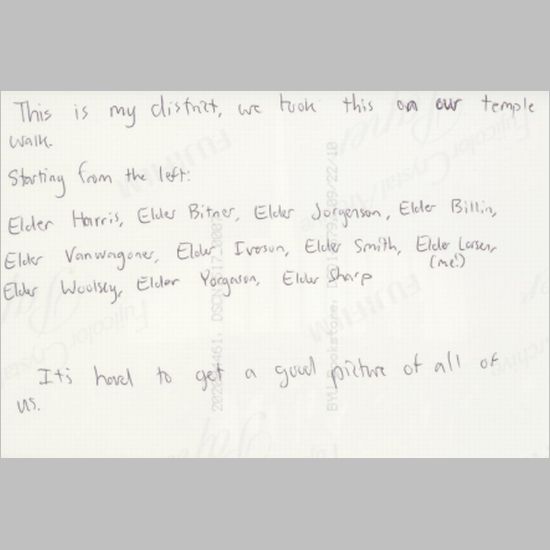 This is my district, we took this on our temple
walk.
Starting from the left:
Elder Harris, Elder Bitner, Elder Jorgenson, Elder Billin,
Elder Vanwagoner, Elder Iveson, Elder Smith, Elder Larsen,
(me!)
Elder Woolsey, Elder Yorgason, Elder Sharp
It's hard to get a good picture of all of
us.
FUJIFILM
Fujicolor Crystal Archive
Paper